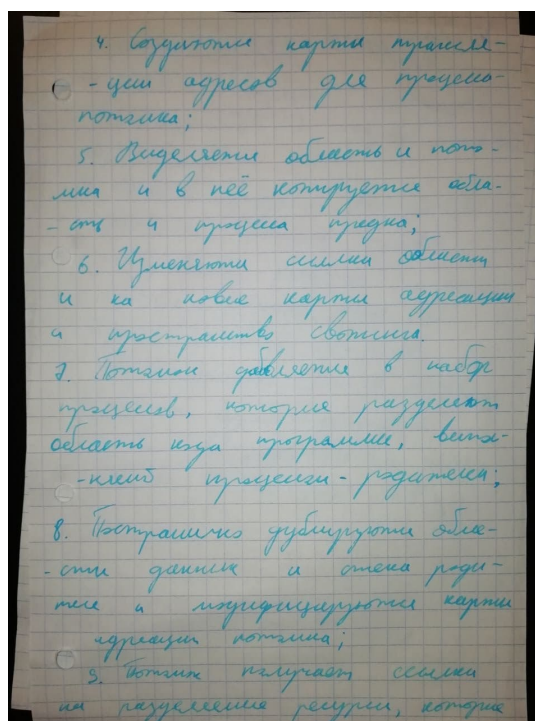 4. Создаются карты трансля-
-ции адресов для процесса-
потомка;
5. Выделяется область u пото-
мка и в неё копируется обла-
-сть u процесса предка;
6. Изменяются ссылки области
u на новые карты адресации
и пространство свопинга.
7. Потомок добавляется в набор
процессов, которые разделяют
область кода программы, выпол-
-няемой процессом-родителем;
8. Постранично дублируются обла-
-сти данных и стека роди-
теля и модифицируются карты
адресации потомка;
9. Потомок получает ссылки
на разделяемые ресурсы, которые